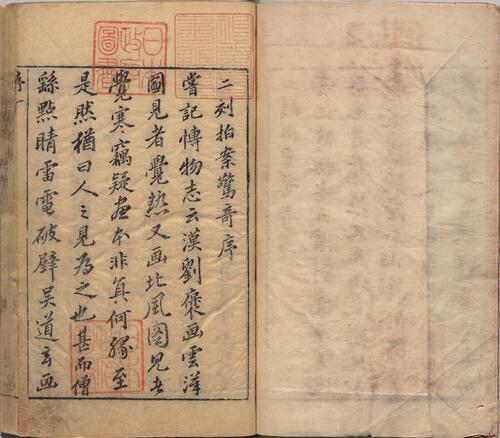 二刻拍案驚奇序
嘗記博物志云漢劉褒画雲漢
圖見者覺熱又画北風圖見者
覺寒竊疑画本非真何縁至
是然猶曰人之見為之也甚而僧
繇點睛雷電破壁吳道玄画
序一
日本
政府
圖書